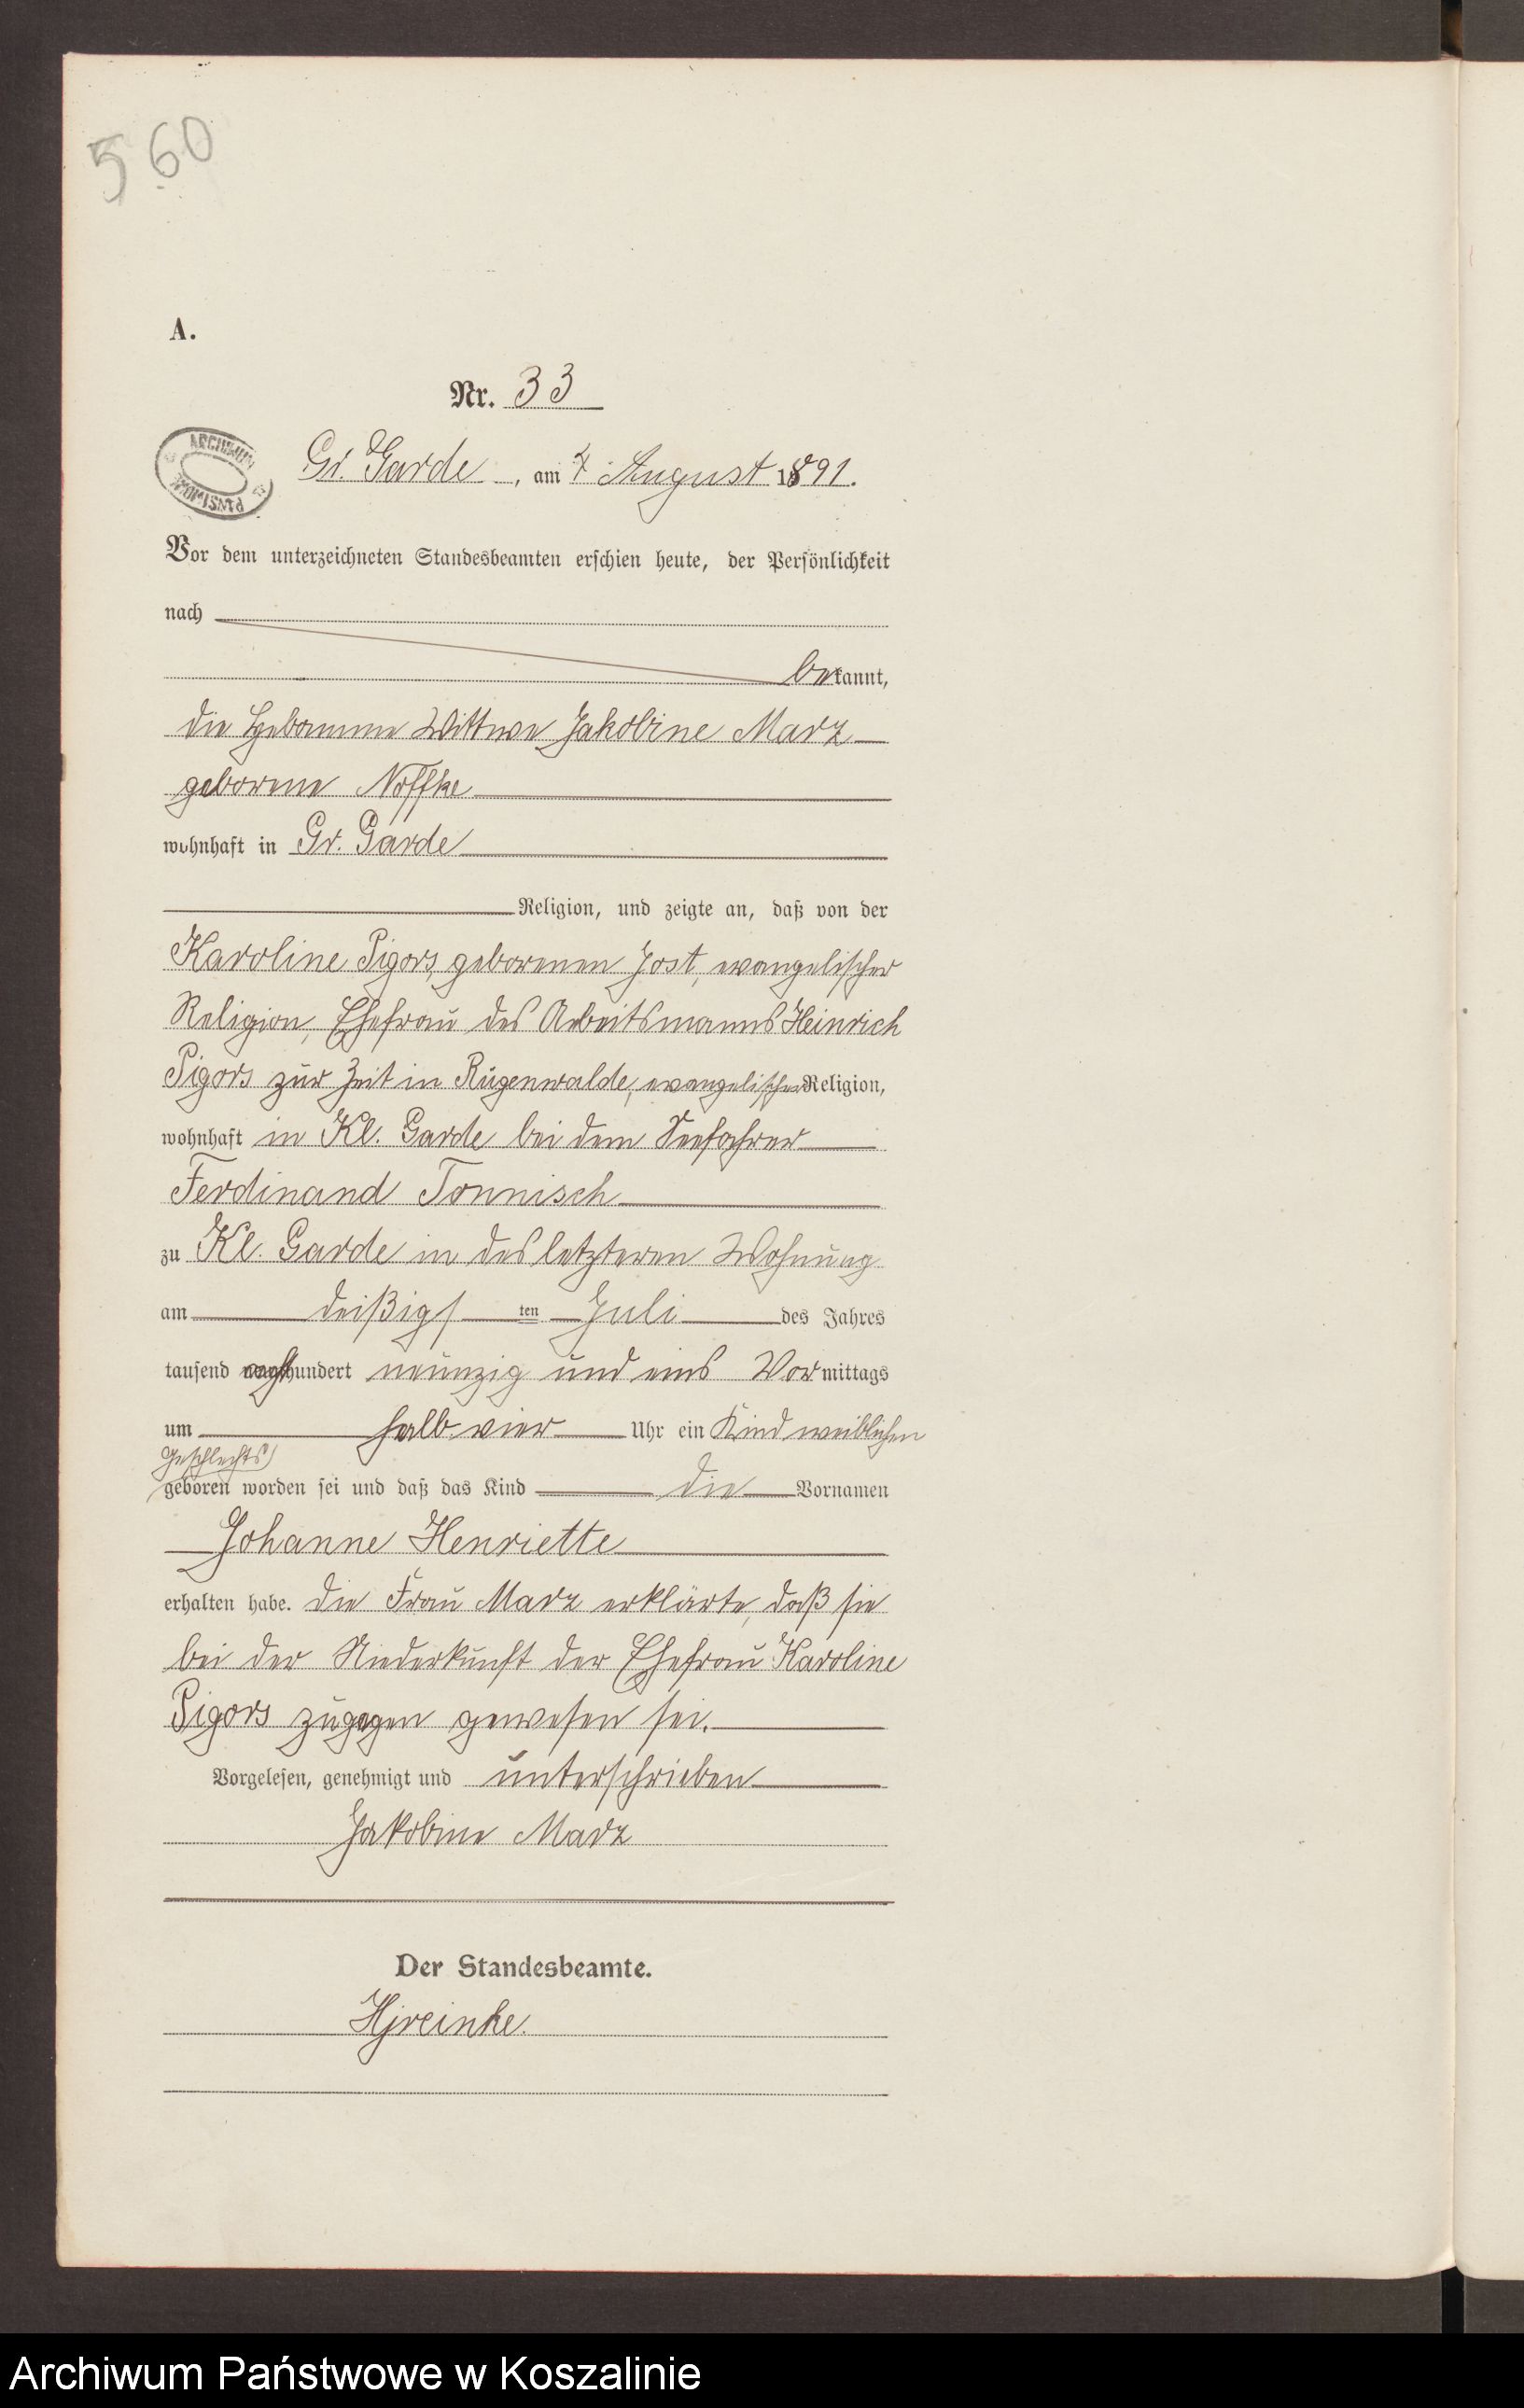 560
A.
Nr. 33
ARCHIWUM PAŃSTWOWE
Gr. Garde, am 4 August 1891.
Vor dem unterzeichneten Standesbeamten erschien heute, der Persönlichkeit
nach
bekannt,
die Hebamme Wittwe Jakobine Marz
geborene Noffke
wohnhaft in Gr. Garde
Religion, und zeigte an, daß von der
Karoline Pigors, geborenen Jost, evangelischer
Religion, Ehefrau des Arbeitsmanns Heinrich
Pigors zur Zeit in Rügenwalde, evangelischer Religion,
wohnhaft in Kl. Garde bei dem Seefahrer
Ferdinand Tonnisch
zu Kl. Garde in des letzteren Wohnung
am deißigsten Juli des Jahres
tausend achthundert neunzig und eins Vormittags
um halb vier Uhr ein Kind weiblichen
Geschlechts
geboren worden sei und daß das Kind die Vornamen
Johanne Henriette
erhalten habe. Die Frau Marz erklärte, daß sie
bei der Niederkunft der Ehefrau Karoline
Pigors zugegen gewesen sei.
Vorgelesen, genehmigt und unterschrieben
Jakobine Marz
Der Standesbeamte.
Archiwum Państwowe w Koszalinie